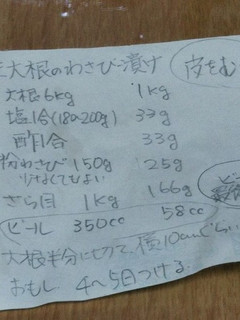 大根のわさび漬け
皮をむ
大根6kg 1kg
塩1合(180~200g) 33g
酢1合 33g
粉わさび150g 25g
少なくてもよい
ざら目 1kg 166g
ビール 350cc 58cc
大根半分に切って、横10cmぐらい
おもし 4~5日つける